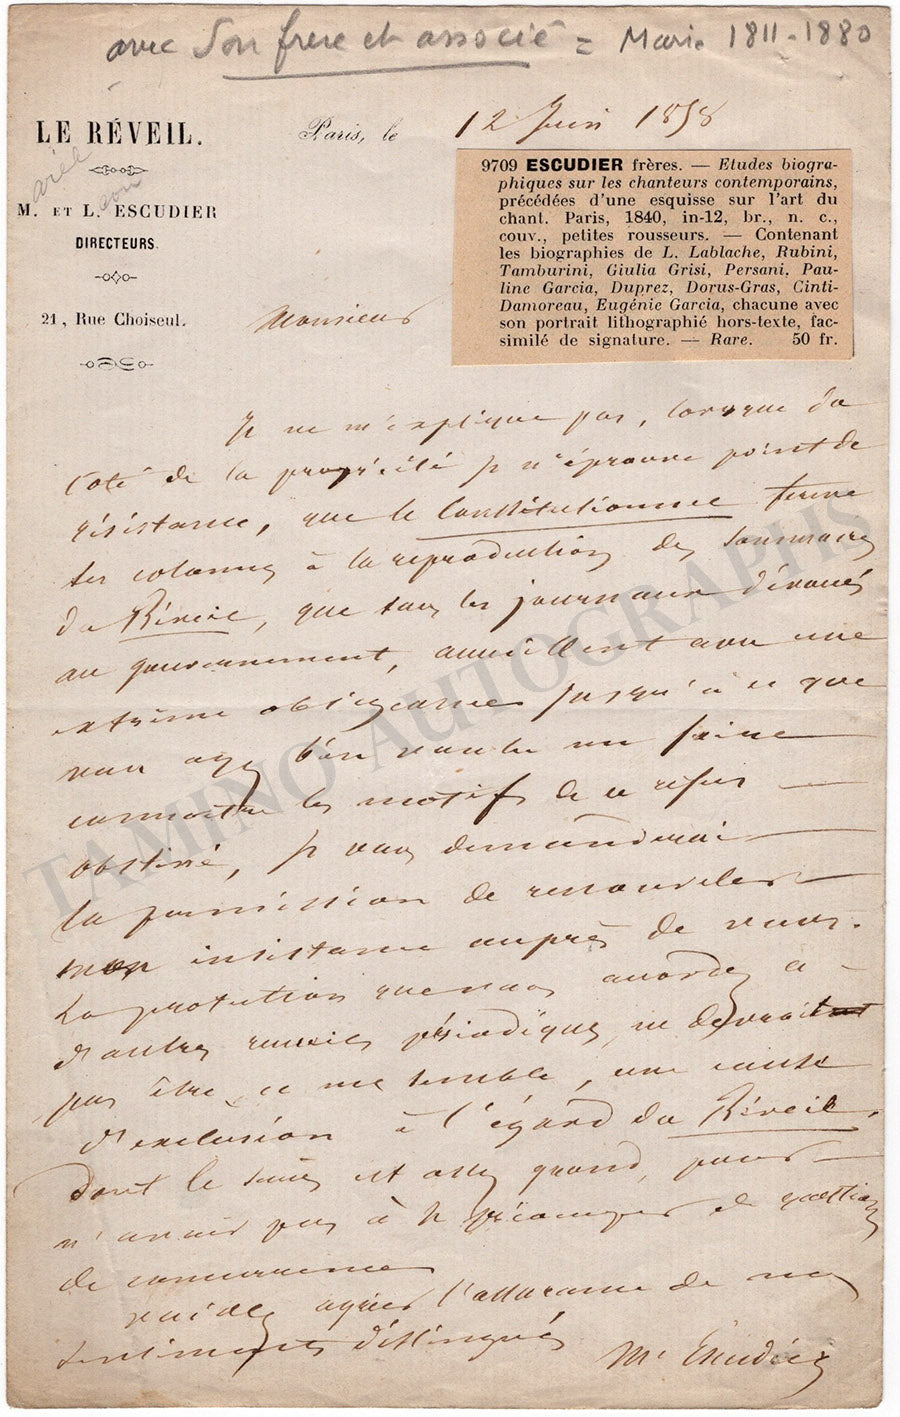 avec son frère et associé = Marie 1811-1880
LE RÉVEIL.
Paris, le 12 Juin 1858
M. ET L. ESCUDIER
DIRECTEURS.
21, Rue Choiseul.
9709 ESCUDIER frères. — Etudes biogra-
phiques sur les chanteurs contemporains,
précédées d'une esquisse sur l'art du
chant. Paris, 1840, in-12, br., n. c.,
couv., petites rousseurs. — Contenant
les biographies de L. Lablache, Rubini,
Tamburini, Giulia Grisi, Persani, Pau-
line Garcia, Duprez, Dorus-Gras, Cinti-
Damoreau, Eugénie Garcia, chacune avec
son portrait lithographié hors-texte, fac-
similé de signature. — Rare. 50 fr.
Monsieur
Je ne m'explique pas, lorsque du
coté de la propriété je n'éprouve point de
résistance, que le Constitutionnel ferme
ses colonnes à la reproduction des sommaires
du Réveil, que tous les journaux dévoués
au gouvernement, accueillent avec une
extrème obligeance jusqu'à ce que
vous ayez bien voulu me faire
connaître les motifs de ce refus
obstiné, je vous demanderai
la permission de renouveler
mon insistance auprès de vous.
La protection que vous accordez a
d'autres revues périodiques, ne devrait
pas être, ce me semble, une cause
d'exclusion à l'égard du Réveil,
dont le succès est assez grand, pour
n'avoir pas à se préoccuper de question
de concurrence
veuillez agréer l'assurance de mes
sentiments distingués
M. Escudier
TAMINO AUTOGRAPHS